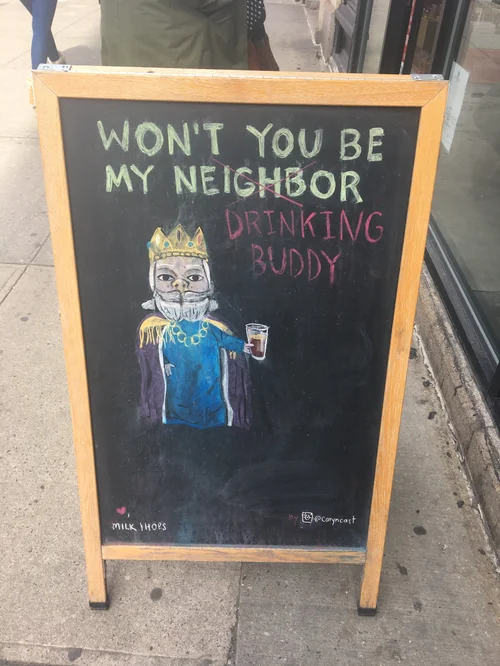 WON'T YOU BE
MY NEIGHBOR
DRINKING
BUDDY
MILK & HOPS
by @coryncast